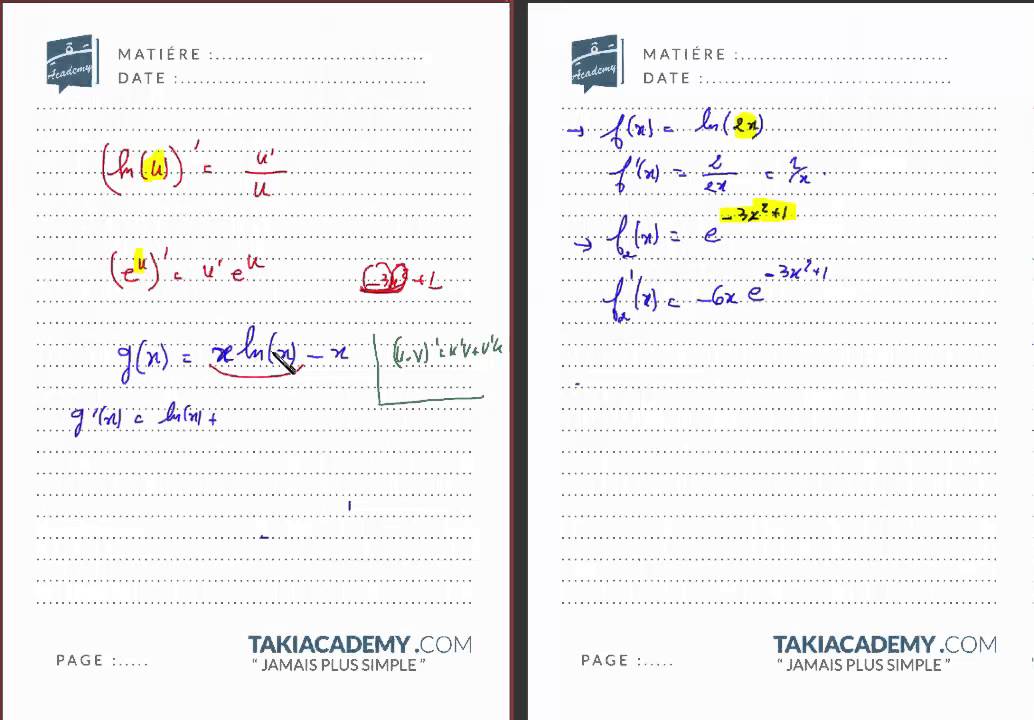 Academy
MATIÉRE :......................................
DATE :.............................................
(ln(u))' = u'/u
(e^u)' = u' e^u
-3x² + 1
g(x) = x ln(x) - x
(u.v)' = u'v + v'u
g'(x) = ln(x) +
PAGE :.....
TAKIACADEMY.COM
“ JAMAIS PLUS SIMPLE ”
Academy
MATIÉRE :......................................
DATE :.............................................
→ f(x) = ln(2x)
f'(x) = 2/2x = 1/x.
→ f₂(x) = e^(-3x²+1)
f₂'(x) = -6x e^(-3x²+1)
PAGE :.....
TAKIACADEMY.COM
“ JAMAIS PLUS SIMPLE ”